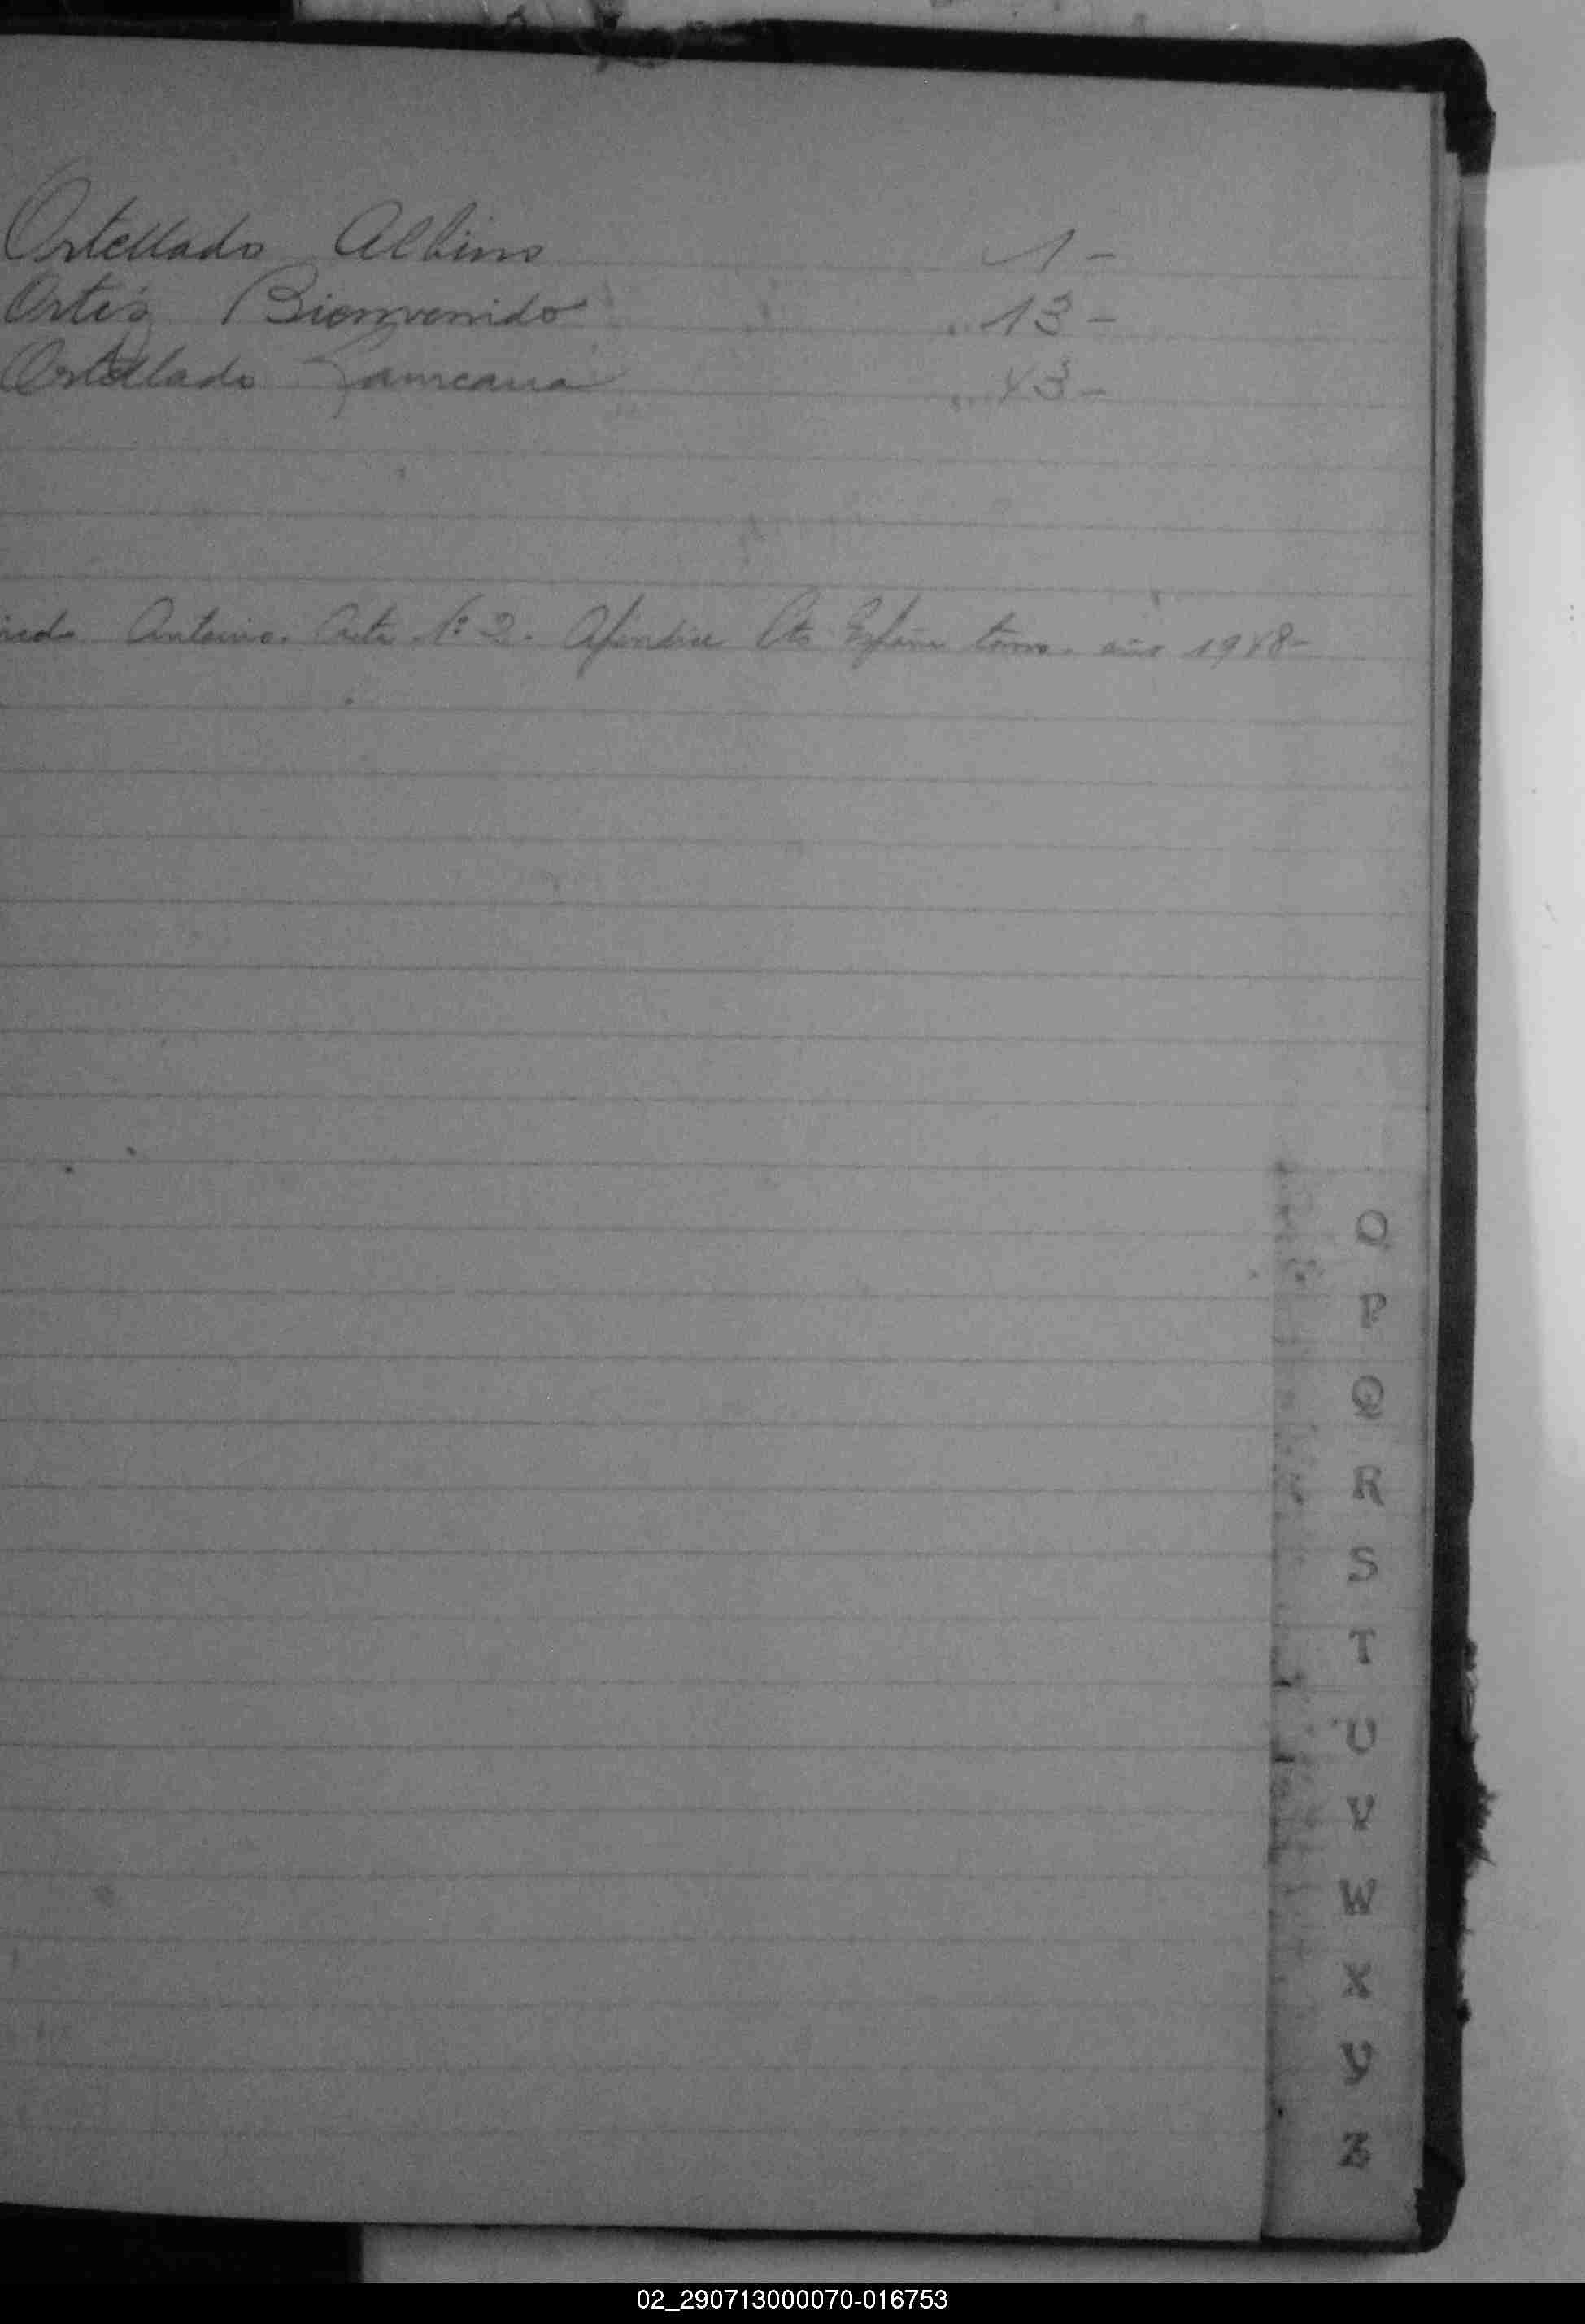 Ortellado Albino 1-
Ortis Bienvenido 13-
Ortellado 43-
Antonio. Acta Nº 2. Apendice España tomo. año 1948-
O
P
Q
R
S
T
U
V
W
X
Y
Z
02_290713000070-016753